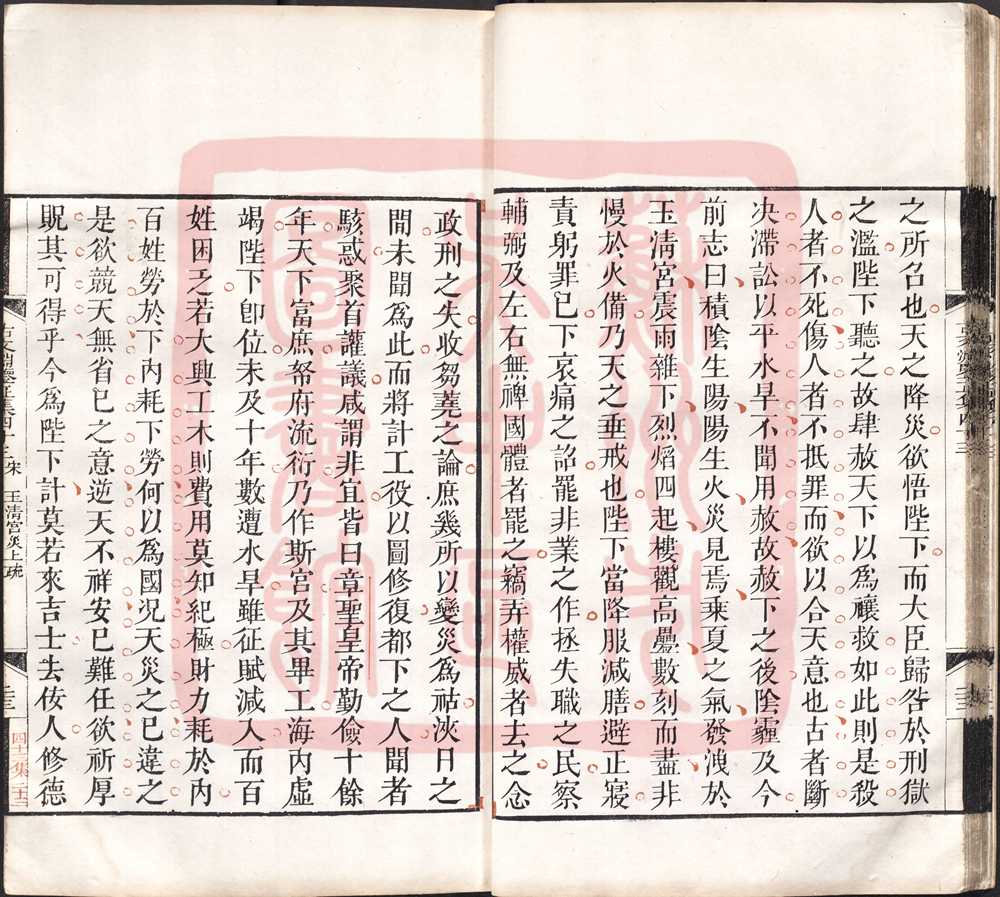 之所召也天之降災欲悟陛下而大臣歸咎於刑獄
之濫陛下聽之故肆赦天下以為禳救如此則是殺
人者不死傷人者不抵罪而欲以合天意也古者斷
决滯訟以平水旱不聞用赦故赦下之後陰霾及今
前志曰積陰生陽陽生火災見焉乘夏之氣發洩於
玉清宮震雨雜下烈熖四起樓觀高疊數刻而盡非
慢於火備乃天之垂戒也陛下當降服減膳避正寢
責躬罪已下哀痛之詔罷非業之作拯失職之民察
輔弼及左右無裨國體者罷之竊弄權威者去之念
政刑之失收芻蕘之論庶幾所以變災爲祜浹日之
間未聞爲此而將計工役以圖修復都下之人聞者
駭惑聚首讙議咸謂非宜皆曰章聖皇帝勤儉十餘
年天下富庶帑府流衍乃作斯宮及其畢工海内虛
竭陛下卽位未及十年數遭水旱雖征賦減入而百
姓困乏若大興工木則費用莫知紀極財力耗於内
百姓勞於下内耗下勞何以爲國況天災之已違之
是欲競天無省已之意逆天不祥安已難任欲祈厚
貺其可得乎今爲陛下計莫若來吉士去佞人修德
宋 玉清宮災上疏